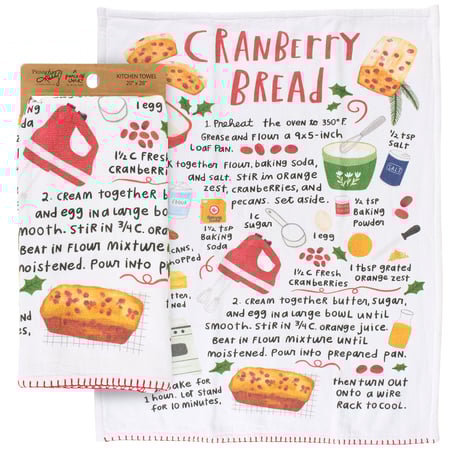 KITCHEN TOWEL
20" x 26"
1 egg
1½ C Fresh
CRANBERRIES
2. CREAM together b
and egg in a large bowl
smooth. Stir in 3/4 C. ora
Beat in Flour mixture
moistened. Pour into
CRANBERRY
BREAD
1. Preheat the oven to 350°F.
Grease and Flour a 9x5-inch
Loaf Pan.
k together flour, baking soda,
and salt. Stir im orange
zest, cranberries, and
pecans. Set aside.
½ tsp
Salt
SALT
Flour
1½ tsp
Baking
Soda
1 C
Sugar
1 egg
½ tsp
Baking
Powder
cans,
hopped
1½ C Fresh
CRANBERRIES
1 tbsp grated
orange zest
tter,
ned
2. CREAM together butter, sugar,
and egg in a large bowl until
smooth. Stir in 3/4 C. orange juice.
Beat in Flour mixture until
moistened. Pour into prepared pan.
ake for
1 hour. Let stand
for 10 minutes,
then turn out
onto a wire
Rack to cool.